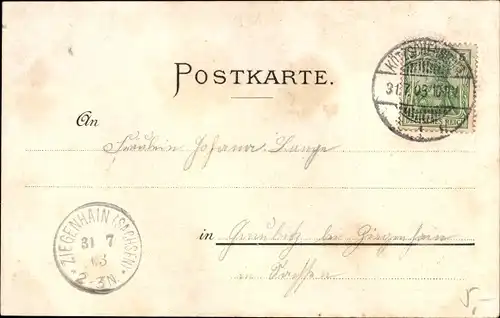 POSTKARTE.
31.7.03.
An
Fräulein Johanna Lange
ZIEGENHAIN (SACHSEN)
31 7
03
2-3N
in Graubitz bei Ziegenhain
in Sachsen
5,-